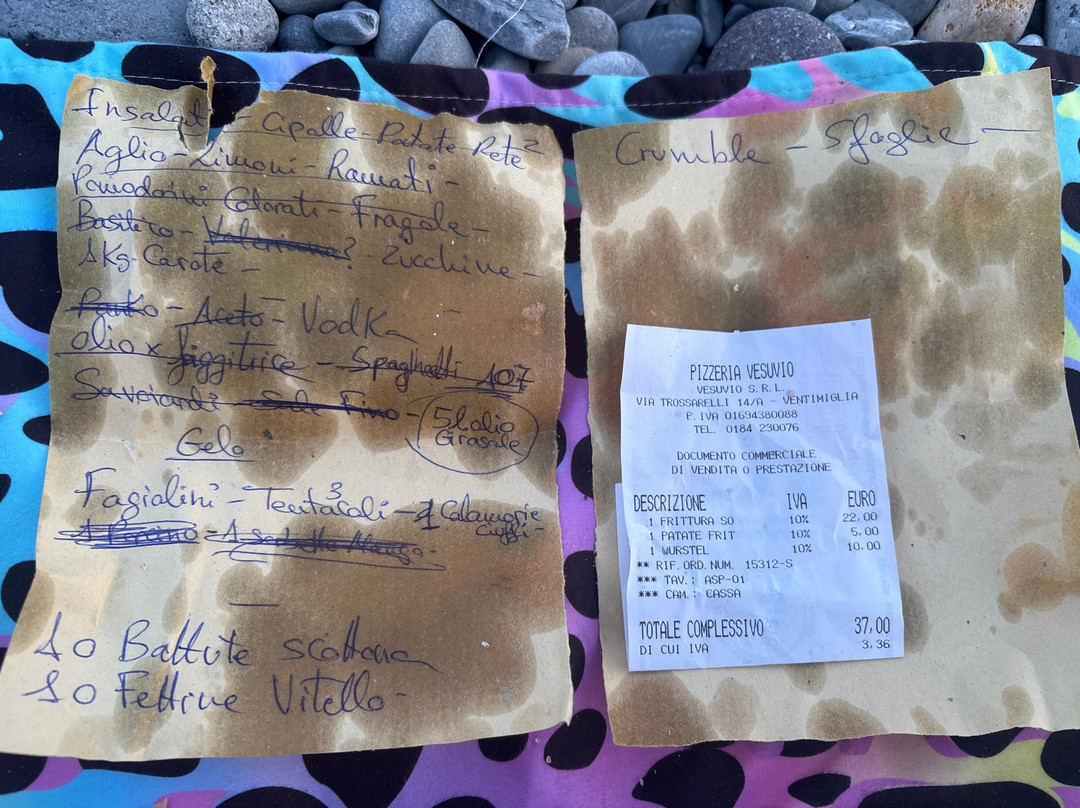 Insalat - Cipolle - Patate Rete 2
Aglio - Limoni - Ramati -
Pomodorini Colorati - Fragole -
Basilico - ? - Zucchine -
1Kg Carote -
Aceto - Vodka -
Olio x friggitrice - Spaghetti 107
Savoiardi - Sale Fino -
5l olio
Girasole
Gelo
Fagiolini - Tentacoli 3 - 1 Calamarie
Ciuffi -
10 Battute scottona
10 Fettine Vitello -
Crumble - Sfoglie -
PIZZERIA VESUVIO
VESUVIO S.R.L.
VIA TROSSARELLI 14/A - VENTIMIGLIA
P.IVA 01694380088
TEL. 0184 230076
DOCUMENTO COMMERCIALE
DI VENDITA O PRESTAZIONE
DESCRIZIONE IVA EURO
1 FRITTURA SO 10% 22,00
1 PATATE FRIT 10% 5,00
1 WURSTEL 10% 10,00
** RIF.ORD.NUM. 15312-S
*** TAV.: ASP-01
*** CAM.: CASSA
TOTALE COMPLESSIVO 37,00
DI CUI IVA 3,36